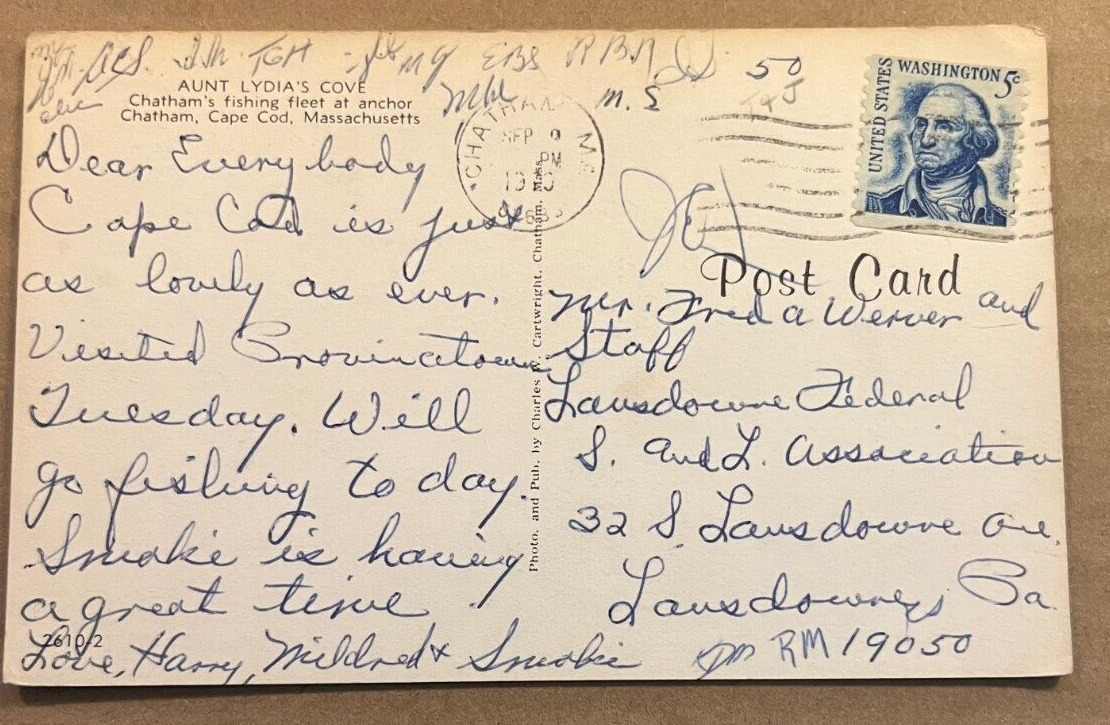 ACS. JM. TGH MG EBS RBN 50
AUNT LYDIA'S COVE
Chatham's fishing fleet at anchor
Chatham, Cape Cod, Massachusetts
M.S
CHATHAM MASS.
SEP 9
PM
UNITED STATES
WASHINGTON 5c
Dear Everybody
Cape Cod is just
as lovly as ever.
Visited Provincetown
Tuesday. Will
go fishing to day.
Smokie is having
a great time.
2610-2
Love, Harry, Mildred & Smokie
Photo. and Pub. by Charles W. Cartwright, Chatham, Mass.
Post Card
Mr. Fred A Werner and
Staff
Lansdowne Federal
S. and L. Association
32 S. Lansdowne Ave.
Lansdowne, Pa.
RM 19050